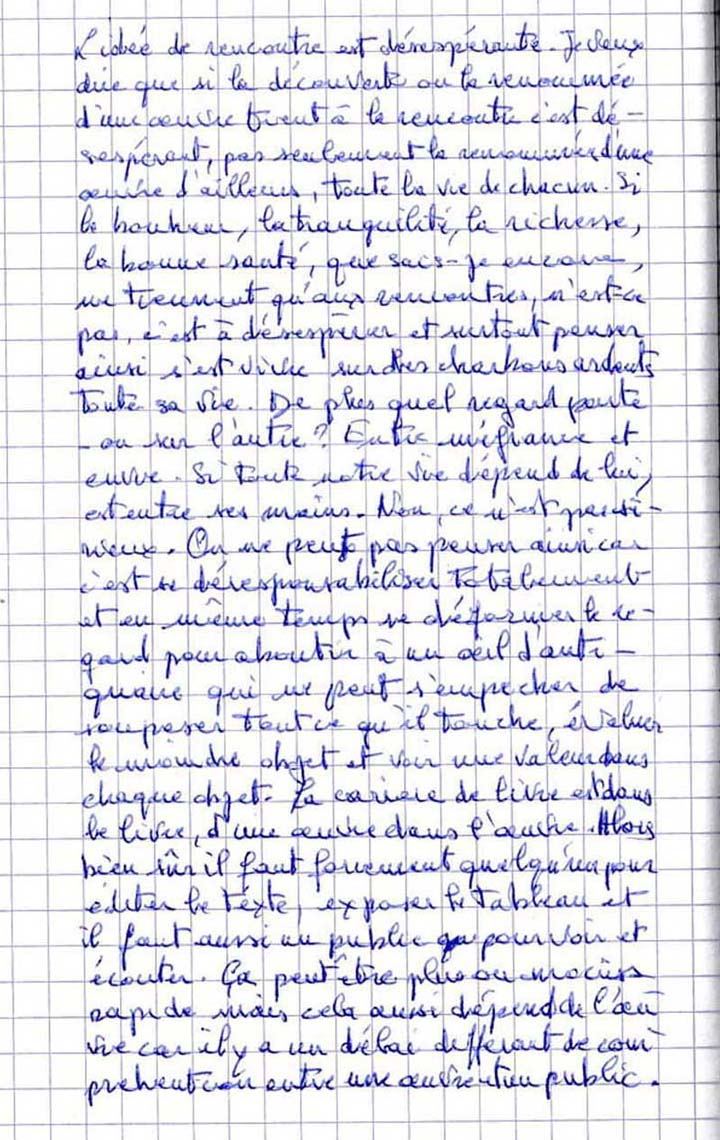 L'idée de rencontre est désespérante. Je veux
dire que si la découverte ou la renommée
d'une œuvre tient à la rencontre c'est dé-
sespérant, pas seulement la renommée d'une
œuvre d'ailleurs, toute la vie de chacun. Si
le bonheur, la tranquilité, la richesse,
la bonne santé, que sais-je encore,
ne tiennent qu'aux rencontres, n'est-ce
pas, c'est à désespérer et surtout penser
ainsi c'est vivre sur des charbons ardents
toute sa vie. De plus quel regard porte
-on sur l'autre? Entre méfiance et
envie. Si toute notre vie dépend de lui,
est entre ses mains. Non, ce n'est pas sé-
rieux. On ne peut pas penser ainsi car
c'est se désresponsabiliser totalement
et en même temps se déformer le re-
gard pour aboutir à un œil d'anti-
quaire qui ne peut s'empecher de
soupeser tout ce qu'il touche, évaluer
le moindre objet et voir une valeur dans
chaque objet. La cariere de livre est dans
le livre, d'une œuvre dans l'œuvre. Alors
bien sûr il faut forcement quelqu'un pour
éditer le texte, exposer le tableau et
il faut aussi un public pour voir et
écouter. Ça peut être plus ou moins
rapide mais cela aussi dépend de l'œu
vre car il y a un délai différent de com
prehention entre une œuvre et un public.